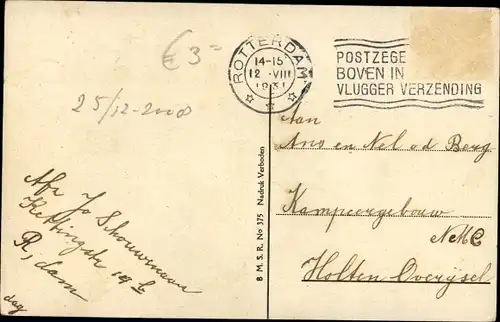 € 3=
ROTTERDAM
14-15
12 · VIII
1931
POSTZEGE
BOVEN IN
VLUGGER VERZENDING
25/12-2008
Aan
Ans en Nel v d Berg
Kampeergebouw
NeMC
Holten Overijsel
Afz Jo Schouwenaar
R, dam
dag
8 M. S. R. No 375 Nadruk Verboden